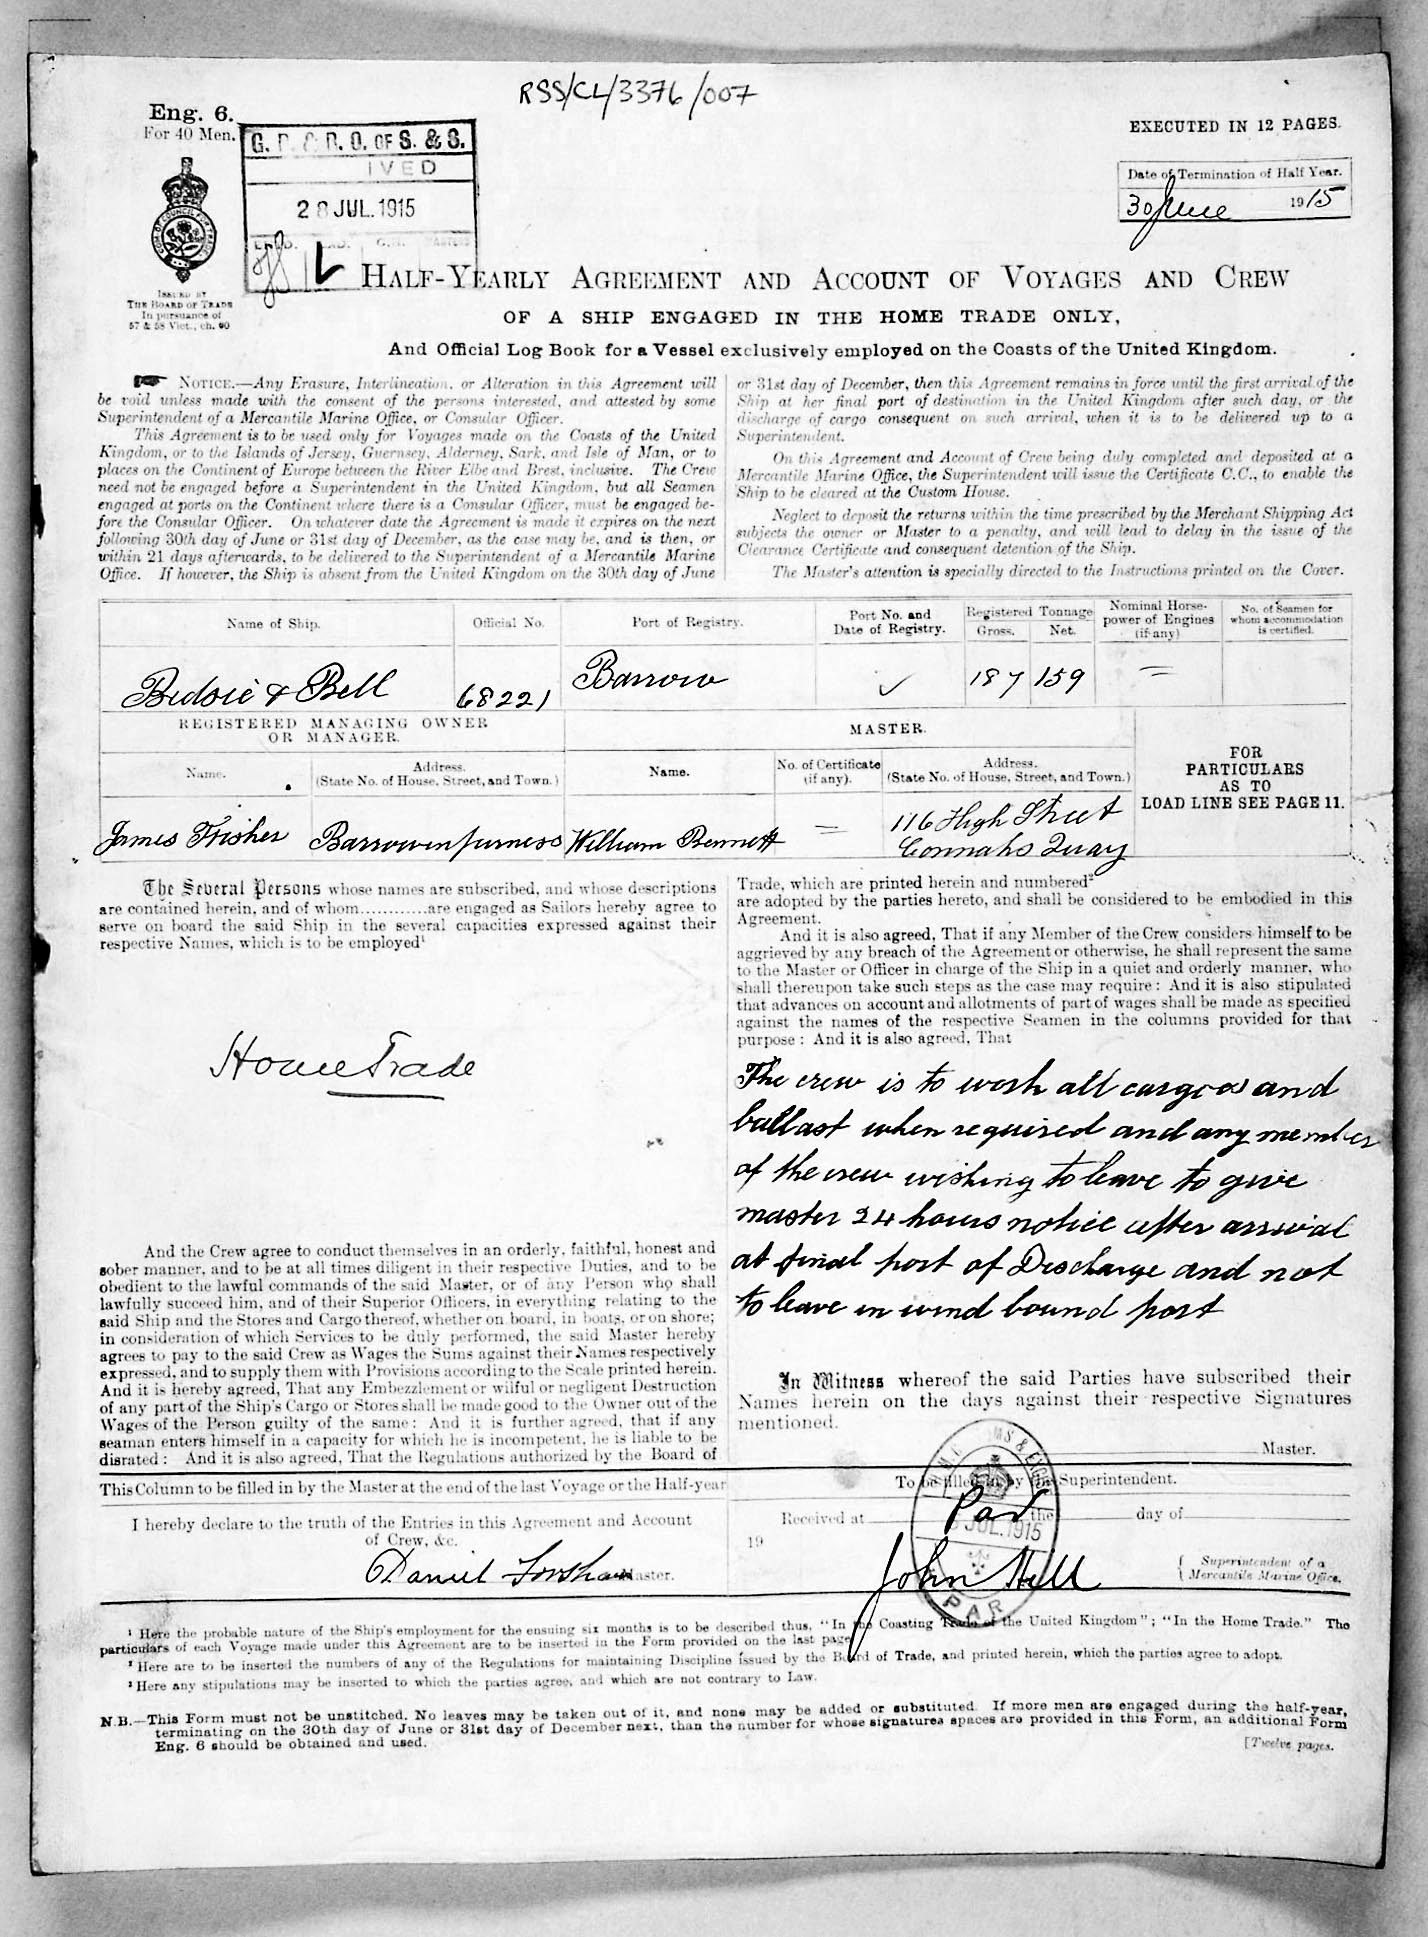 RSS/CL/3376/007
Eng. 6.
For 40 Men.
G. R. & R. O. OF S. & S.
IVED
28 JUL. 1915
EXECUTED IN 12 PAGES.
Date of Termination of Half Year.
30 June 1915
ISSUED BY
THE BOARD OF TRADE
In pursuance of
57 & 58 Vict., ch. 60
HALF-YEARLY AGREEMENT AND ACCOUNT OF VOYAGES AND CREW
OF A SHIP ENGAGED IN THE HOME TRADE ONLY,
And Official Log Book for a Vessel exclusively employed on the Coasts of the United Kingdom.
NOTICE.—Any Erasure, Interlineation, or Alteration in this Agreement will
be void unless made with the consent of the persons interested, and attested by some
Superintendent of a Mercantile Marine Office, or Consular Officer.
This Agreement is to be used only for Voyages made on the Coasts of the United
Kingdom, or to the Islands of Jersey, Guernsey, Alderney, Sark, and Isle of Man, or to
places on the Continent of Europe between the River Elbe and Brest, inclusive. The Crew
need not be engaged before a Superintendent in the United Kingdom, but all Seamen
engaged at ports on the Continent where there is a Consular Officer, must be engaged be-
fore the Consular Officer. On whatever date the Agreement is made it expires on the next
following 30th day of June or 31st day of December, as the case may be, and is then, or
within 21 days afterwards, to be delivered to the Superintendent of a Mercantile Marine
Office. If however, the Ship is absent from the United Kingdom on the 30th day of June
or 31st day of December, then this Agreement remains in force until the first arrival of the
Ship at her final port of destination in the United Kingdom after such day, or the
discharge of cargo consequent on such arrival, when it is to be delivered up to a
Superintendent.
On this Agreement and Account of Crew being duly completed and deposited at a
Mercantile Marine Office, the Superintendent will issue the Certificate C.C., to enable the
Ship to be cleared at the Custom House.
Neglect to deposit the returns within the time prescribed by the Merchant Shipping Act
subjects the owner or Master to a penalty, and will lead to delay in the issue of the
Clearance Certificate and consequent detention of the Ship.
The Master's attention is specially directed to the Instructions printed on the Cover.
Name of Ship. Official No. Port of Registry. Port No. and Date of Registry. Registered Tonnage Gross. Net. Nominal Horse-power of Engines (if any) No. of Seamen for whom accommodation is certified.
& Bell 68221 Barrow 187 159
REGISTERED MANAGING OWNER
OR MANAGER.
MASTER.
FOR
PARTICULARS
AS TO
LOAD LINE SEE PAGE 11.
Name. Address. (State No. of House, Street, and Town.) Name. No. of Certificate (if any). Address. (State No. of House, Street, and Town.)
James Fisher Barrow in furness William Bennett 116 High Street
Connahs Quay
The Several Persons whose names are subscribed, and whose descriptions
are contained herein, and of whom............are engaged as Sailors hereby agree to
serve on board the said Ship in the several capacities expressed against their
respective Names, which is to be employed¹
Home Trade
And the Crew agree to conduct themselves in an orderly, faithful, honest and
sober manner, and to be at all times diligent in their respective Duties, and to be
obedient to the lawful commands of the said Master, or of any Person who shall
lawfully succeed him, and of their Superior Officers, in everything relating to the
said Ship and the Stores and Cargo thereof, whether on board, in boats, or on shore;
in consideration of which Services to be duly performed, the said Master hereby
agrees to pay to the said Crew as Wages the Sums against their Names respectively
expressed, and to supply them with Provisions according to the Scale printed herein.
And it is hereby agreed, That any Embezzlement or wilful or negligent Destruction
of any part of the Ship's Cargo or Stores shall be made good to the Owner out of the
Wages of the Person guilty of the same: And it is further agreed, that if any
seaman enters himself in a capacity for which he is incompetent, he is liable to be
disrated: And it is also agreed, That the Regulations authorized by the Board of
Trade, which are printed herein and numbered²
are adopted by the parties hereto, and shall be considered to be embodied in this
Agreement.
And it is also agreed, That if any Member of the Crew considers himself to be
aggrieved by any breach of the Agreement or otherwise, he shall represent the same
to the Master or Officer in charge of the Ship in a quiet and orderly manner, who
shall thereupon take such steps as the case may require: And it is also stipulated
that advances on account and allotments of part of wages shall be made as specified
against the names of the respective Seamen in the columns provided for that
purpose: And it is also agreed, That
The crew is to work all cargoes and
ballast when required and any member
of the crew wishing to leave to give
master 24 hours notice after arrival
at final port of Discharge and not
to leave in wind bound port
In Witness whereof the said Parties have subscribed their
Names herein on the days against their respective Signatures
mentioned.
Master.
This Column to be filled in by the Master at the end of the last Voyage or the Half-year
I hereby declare to the truth of the Entries in this Agreement and Account
of Crew, &c.
Daniel Master.
To be filled in by the Superintendent.
Received at Par the day of
19
JUL. 1915
John Hill
Superintendent of a
Mercantile Marine Office.
PAR
¹ Here the probable nature of the Ship's employment for the ensuing six months is to be described thus, "In the Coasting Trade of the United Kingdom"; "In the Home Trade." The
particulars of each Voyage made under this Agreement are to be inserted in the Form provided on the last page.
² Here are to be inserted the numbers of any of the Regulations for maintaining Discipline issued by the Board of Trade, and printed herein, which the parties agree to adopt.
³ Here any stipulations may be inserted to which the parties agree, and which are not contrary to Law.
N.B.—This Form must not be unstitched. No leaves may be taken out of it, and none may be added or substituted. If more men are engaged during the half-year,
terminating on the 30th day of June or 31st day of December next, than the number for whose signatures spaces are provided in this Form, an additional Form
Eng. 6 should be obtained and used.
[Twelve pages.